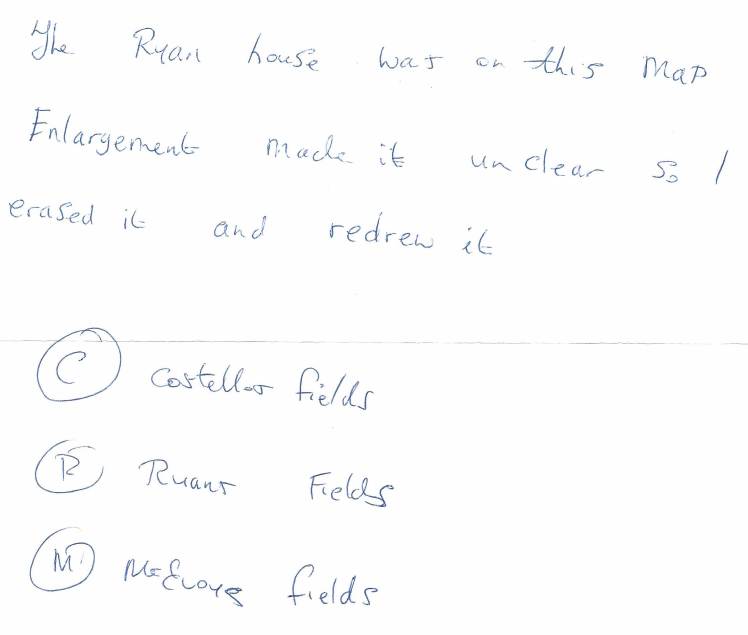 The Ryan house was on this Map
Enlargement made it unclear so I
erased it and redrew it
C Costellos fields
R Ryans Fields
M McEvoys fields